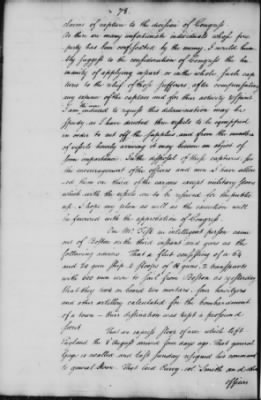 78.
claims of capture to the decision of Congress
As there are many unfortunate individuals whose pro
perty has been confiscated by the enemy, I would hum
bly suggest to the consideration of Congress the hu
manity of applying in part or in the whole such cap
tures to the relief of those sufferers after compensating
any expence of the captors and for their activity & spirit
I am the more induced to request this determination may be
speedy, as I have directed three vessels to be equipped
in order to cut off the supplies, and from the number
of vessels hourly arriving it may become an object of
some importance. In the disposal of these captures, for
the encouragement of the officers and men, I have allow
ed them one third of the cargoes except military stores
which with the vessels are to be reserved for the public
use. I hope my plan as well as the execution will
be favored with the approbation of Congress.
One Mr. Fisk an intelligent person came
out of Boston on the third instant and gives us the
following advices. That a fleet consisting of a 64
and 20 gun ship 2 sloops of 18 guns, 2 transports
with 600 men were to sail from Boston as yesterday
that they took on board two mortars, four howitzers
and other artillery calculated for the bombardment
of a town — their destination was kept a profound
secret.
That an express sloop of war which left
England the 8 August arrived four days ago. That general
Gage is recalled and last Sunday resigned his command
to general Howe. That Lord Percy, col. Smith and other
officers